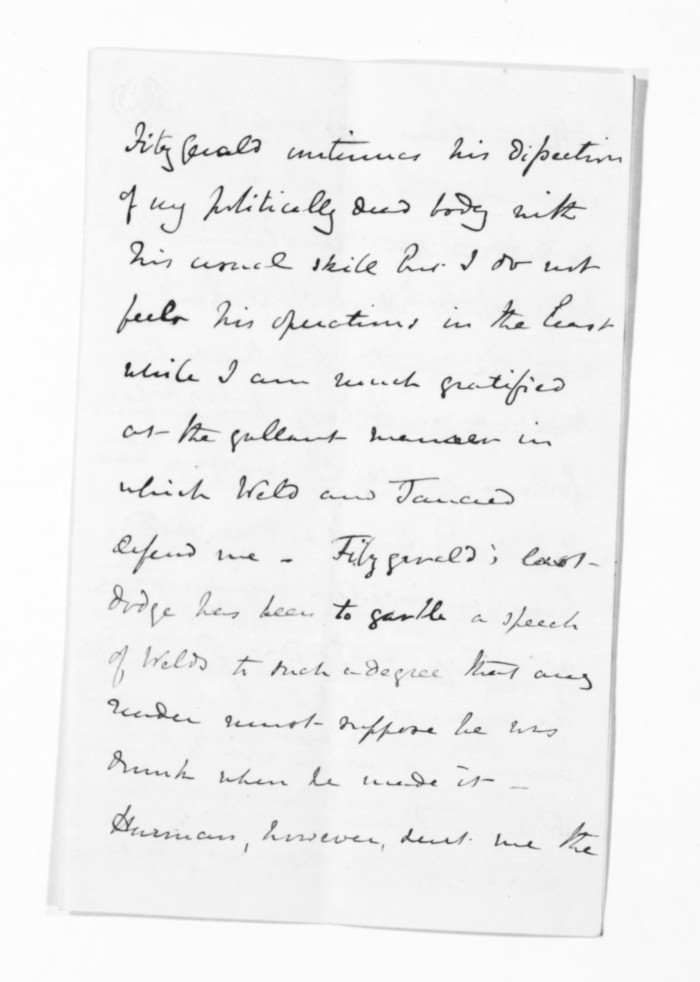 Fitzgerald continues his dissection
of my politically dead body with
his usual skill but I do not
feel his operations in the least
while I am much gratified
at the gallant manner in
which Weld and Tancred
defend me - Fitzgerald's last
dodge has been to garble a speech
of Welds to such a degree that any
reader must suppose he was
drunk when he made it -
Harman, however, sent me the